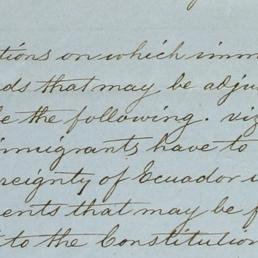 tions on which imm
ds that may be adju
e the following. viz
immigrants have to
reignty of Ecuador i
ents that may be f
to the Constitution